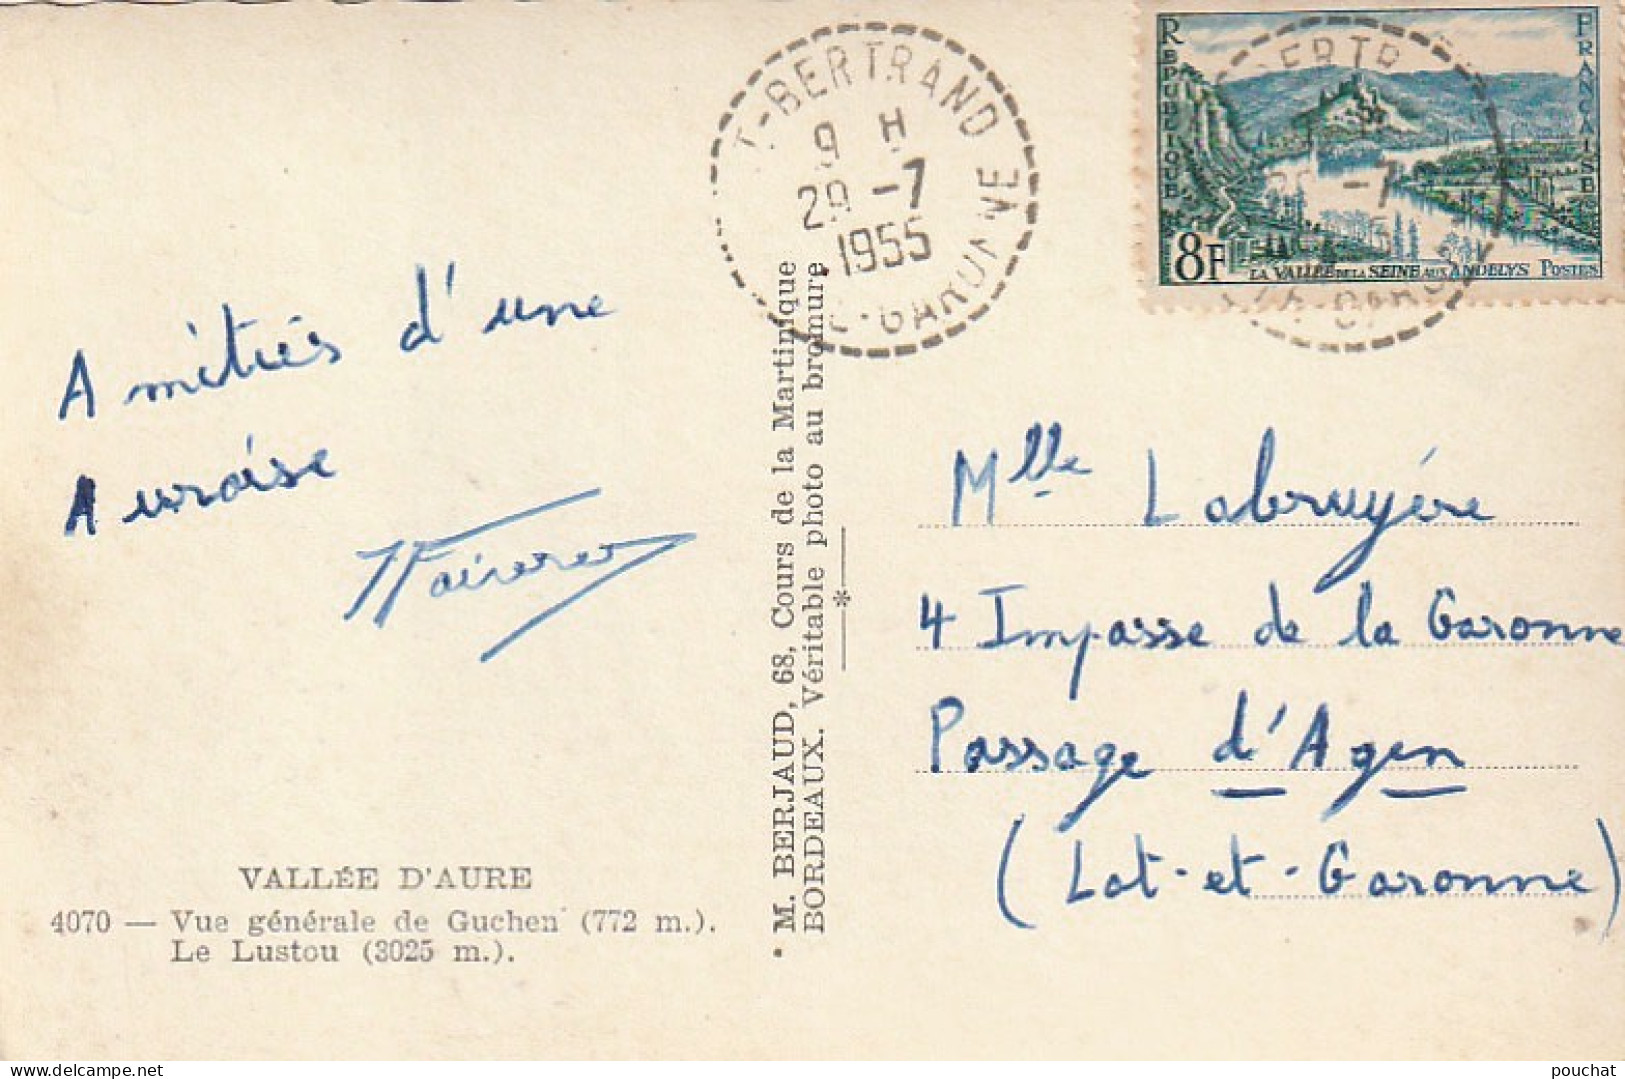 T-BERTRAND
9 H
29 -7
1955
GARONNE
REPUBLIQUE
FRANÇAISE
8F
LA VALLÉE DE LA SEINE AUX ANDELYS POSTES
Amitiés d'une
Auroise
M. BERJAUD, 68, Cours de la Martinique
BORDEAUX. Véritable photo au bromure.
Mlle Labruyère
4 Impasse de la Garonne
Passage d'Agen
(Lot-et-Garonne)
VALLÉE D'AURE
4070 — Vue générale de Guchen (772 m.).
Le Lustou (3025 m.).
pouchat